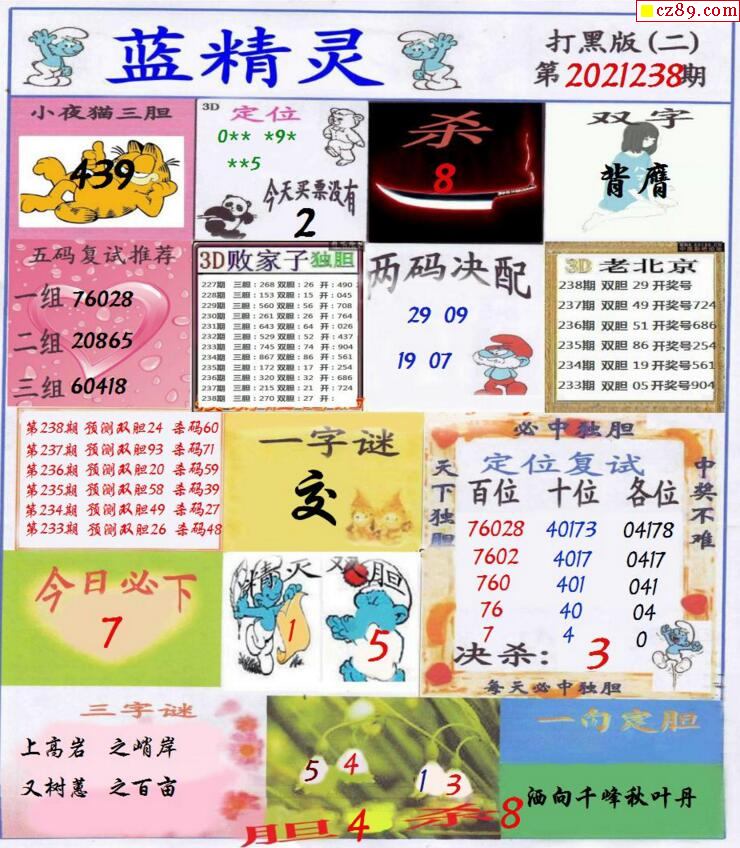 cz89.com
蓝精灵
打黑版(二)
第2021238期
小夜猫三胆
439
3D 定位
0** *9*
**5
今天买票没有
2
杀
8
双字
背膺
五码复试推荐
一组 76028
二组 20865
三组 60418
3D败家子独胆
227期 三胆:268 双胆:26 开:490
228期 三胆:153 双胆:15 开:045
229期 三胆:560 双胆:56 开:708
230期 三胆:261 双胆:26 开:764
231期 三胆:643 双胆:64 开:026
232期 三胆:529 双胆:52 开:437
233期 三胆:745 双胆:74 开:904
234期 三胆:867 双胆:86 开:561
235期 三胆:172 双胆:17 开:254
236期 三胆:320 双胆:32 开:686
237期 三胆:215 双胆:21 开:724
238期 三胆:270 双胆:27 开:
两码决配
29 09
19 07
3D 老北京
238期 双胆 29 开奖号
237期 双胆 49 开奖号724
236期 双胆 51 开奖号686
235期 双胆 86 开奖号254
234期 双胆 19 开奖号561
233期 双胆 05 开奖号904
第238期 预测双胆24 杀码60
第237期 预测双胆93 杀码71
第236期 预测双胆20 杀码59
第235期 预测双胆58 杀码39
第234期 预测双胆49 杀码27
第233期 预测双胆26 杀码48
一字谜
交
必中独胆
天下独胆
中奖不难
定位复试
百位 十位 各位
76028 40173 04178
7602 4017 0417
760 401 041
76 40 04
7 4 0
决杀: 3
每天必中独胆
今日必下
7
精灵双胆
1 5
三字谜
上高岩 之峭岸
又树蕙 之百亩
5 4 1 3
胆4 杀8
一句定胆
洒向千峰秋叶丹